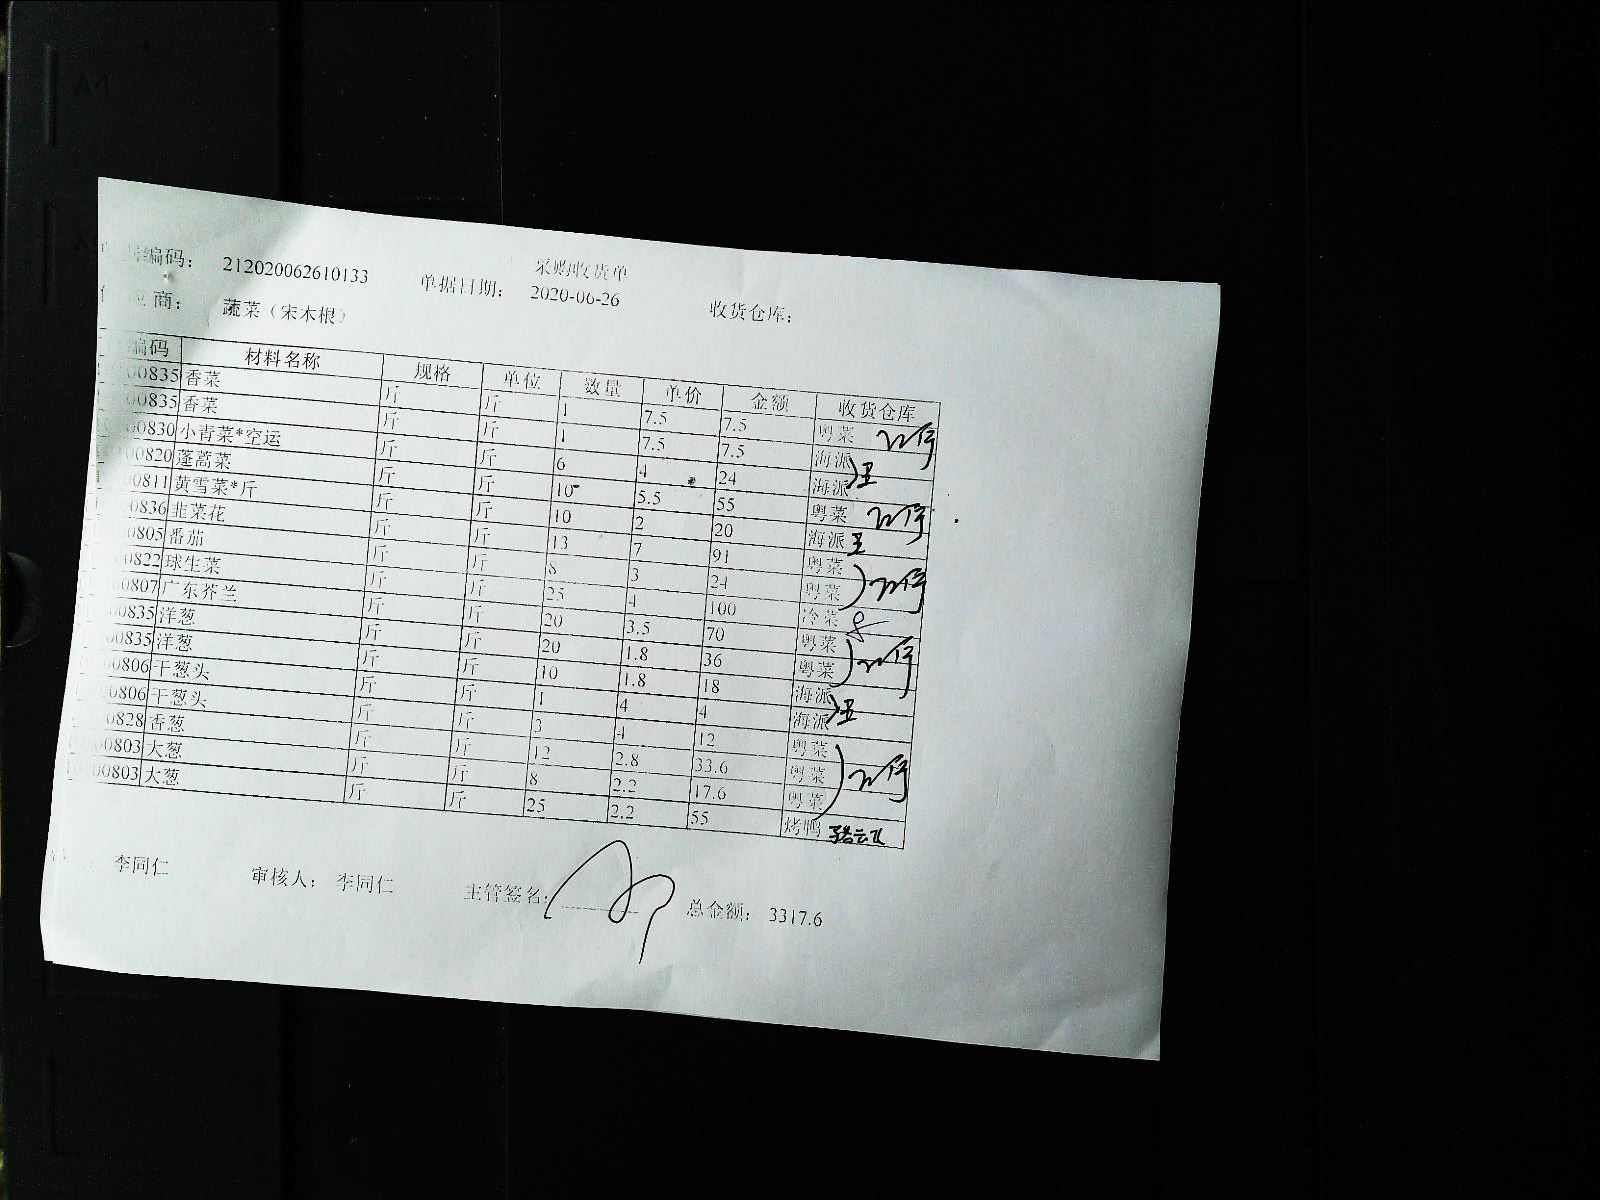 采购收货单
编码： 212020062610133 单据日期： 2020-06-26 收货仓库：
商： 蔬菜（宋木根）
编码 材料名称 规格 单位 数量 单价 金额 收货仓库
00835 香菜 斤 斤 1 7.5 7.5 粤菜
00835 香菜 斤 斤 1 7.5 7.5 海派
00830 小青菜*空运 斤 斤 6 4 24 海派 王
00820 蓬蒿菜 斤 斤 10 5.5 55 粤菜
00811 黄雪菜*斤 斤 斤 10 2 20 海派 王
0836 韭菜花 斤 斤 13 7 91 粤菜
0805 番茄 斤 斤 8 3 24 粤菜
0822 球生菜 斤 斤 25 4 100 冷菜
00807 广东芥兰 斤 斤 20 3.5 70 粤菜
0835 洋葱 斤 斤 20 1.8 36 粤菜
00835 洋葱 斤 斤 10 1.8 18 海派
00806 干葱头 斤 斤 1 4 4 海派 王
0806 干葱头 斤 斤 3 4 12 粤菜
00828 香葱 斤 斤 12 2.8 33.6 粤菜
00803 大葱 斤 斤 8 2.2 17.6 粤菜
00803 大葱 斤 斤 25 2.2 55 烤鸭
李同仁 审核人： 李同仁 主管签名： 总金额： 3317.6